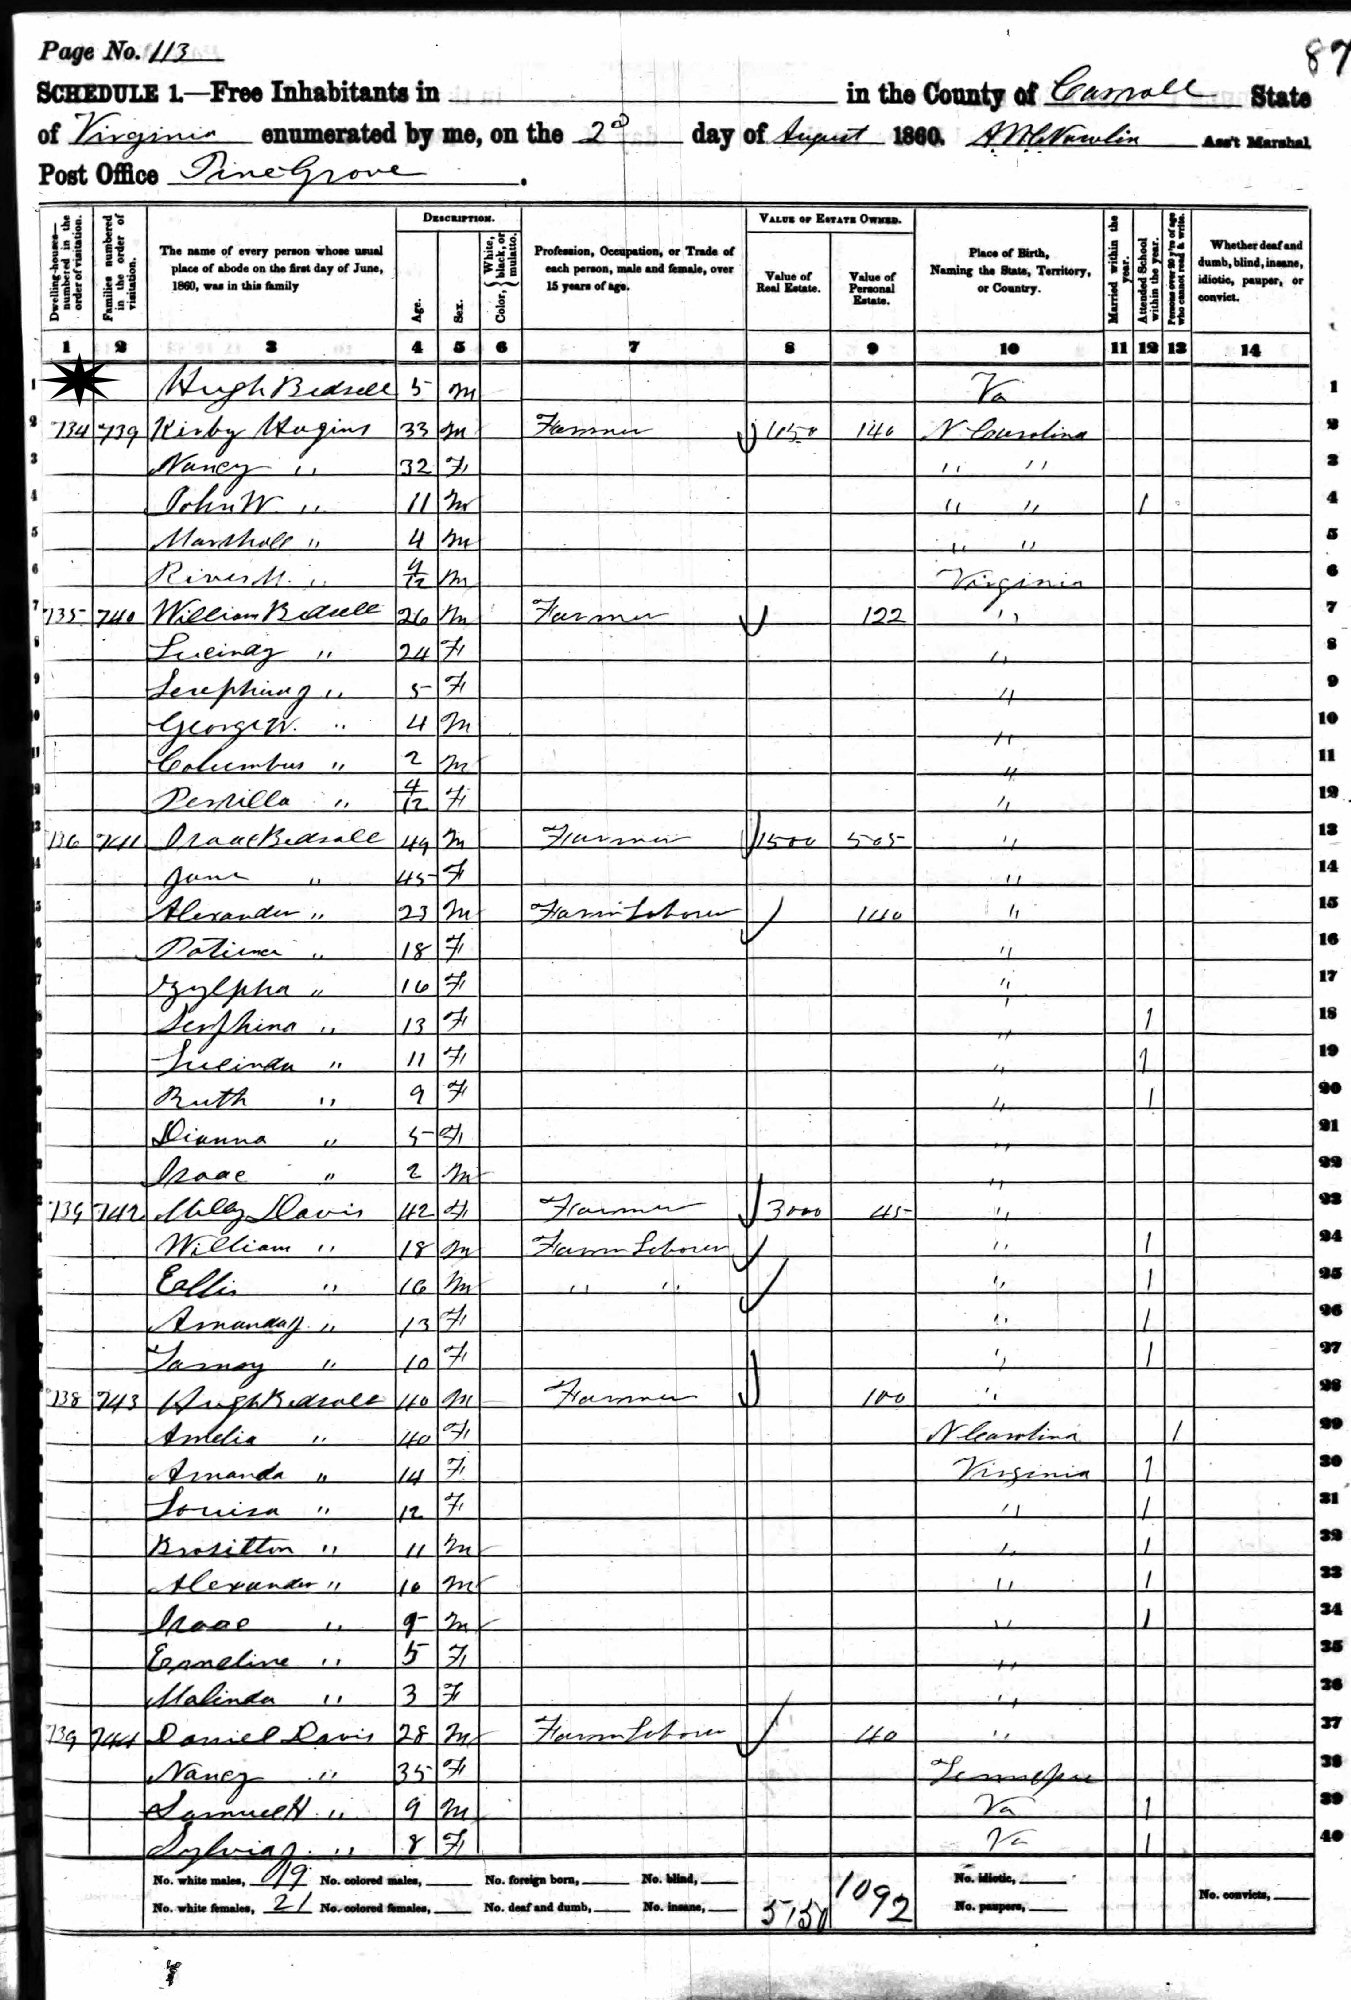 Page No. 113
87
SCHEDULE 1.—Free Inhabitants in in the County of Carroll State
of Virginia enumerated by me, on the 2d day of August 1860. Ass't Marshal
Post Office Pine Grove.
Dwelling-houses—numbered in the order of visitation. Families numbered in the order of visitation. The name of every person whose usual place of abode on the first day of June, 1860, was in this family DESCRIPTION. Age. Sex. Color, White, black, or mulatto. Profession, Occupation, or Trade of each person, male and female, over 15 years of age. VALUE OF ESTATE OWNED. Value of Real Estate. Value of Personal Estate. Place of Birth, Naming the State, Territory, or Country. Married within the year. Attended School within the year. Persons over 20 y'rs of age who cannot read & write. Whether deaf and dumb, blind, insane, idiotic, pauper, or convict.
1 2 3 4 5 6 7 8 9 10 11 12 13 14
1 Hugh Bedsell 5 m Va 1
2 734 739 Kirby Hugins 33 m Farmer 650 140 N Carolina 2
3 Nancy " 32 F " " 3
4 John W. " 11 m " " 1 4
5 Marshall " 4 m " " 5
6 River M. " m Virginia 6
7 735 740 William Bedsell 26 m Farmer 122 " 7
8 Lucinday " 24 F " 8
9 " 5 F " 9
10 George W. " 4 m " 10
11 Columbus " 2 m " 11
12 " 4/12 F " 12
13 736 741 Isaac Bedsall 49 m Farmer 1500 505 " 13
14 Jane " 45 F " 14
15 Alexander " 23 m Farm Laborer 140 " 15
16 " 18 F " 16
17 Zylpha " 16 F " 17
18 Serphina " 13 F " 1 18
19 Lucinda " 11 F " 1 19
20 Ruth " 9 F " 1 20
21 Dianna " 5 F " 21
22 Isaac " 2 m " 22
23 739 742 Milly Davis 42 F Farmer 3000 45 " 23
24 William " 18 m Farm Laborer " 1 24
25 Ellis " 16 m " " " 1 25
26 Amanda J. " 13 F " 1 26
27 " 10 F " 1 27
28 738 743 Hugh Bedsall 40 m Farmer 100 " 28
29 Amelia " 40 F N Carolina 1 29
30 Amanda " 14 F Virginia 1 30
31 Louisa " 12 F " 1 31
32 " 11 m " 1 32
33 Alexander " 10 m " 1 33
34 Isaac " 9 m " 1 34
35 Emeline " 5 F " 35
36 Malinda " 3 F " 36
37 739 744 Daniel Davis 28 m Farm Laborer 40 " 37
38 Nancy " 35 F Tennessee 38
39 Samuel H. " 9 m Va 1 39
40 Sylvia J. " 8 F Va 1 40
No. white males, 19 No. colored males, No. foreign born, No. blind, No. idiotic,
No. white females, 21 No. colored females, No. deaf and dumb, No. insane, 5150 1092 No. paupers, No. convicts,